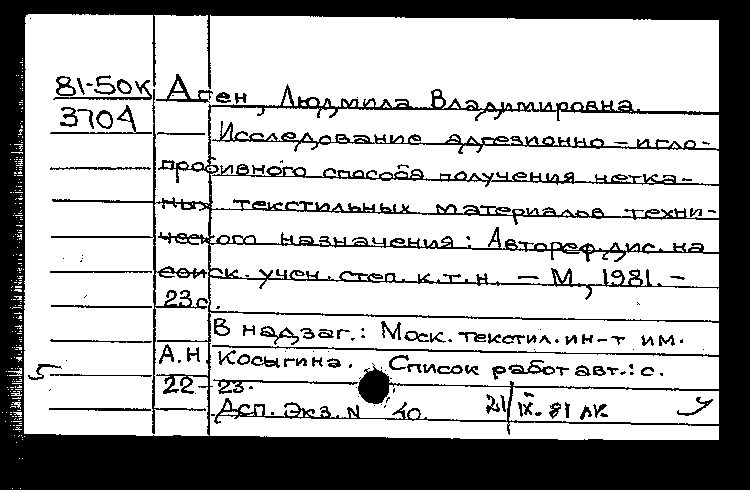 81-50к Аген, Людмила Владимировна.
3704
Исследование адгезионно-игло-
пробивного способа получения нетка-
ных текстильных материалов техни-
ческого назначения: Автореф.дис. на
соиск. учен. степ. к.т.н. - М., 1981. -
23с.
В надзаг.: Моск. текстил. ин-т им.
А.Н. Косыгина. Список работ авт.: с.
22-23.
Дсп. Экз. N 40. 21/IX. 81
5